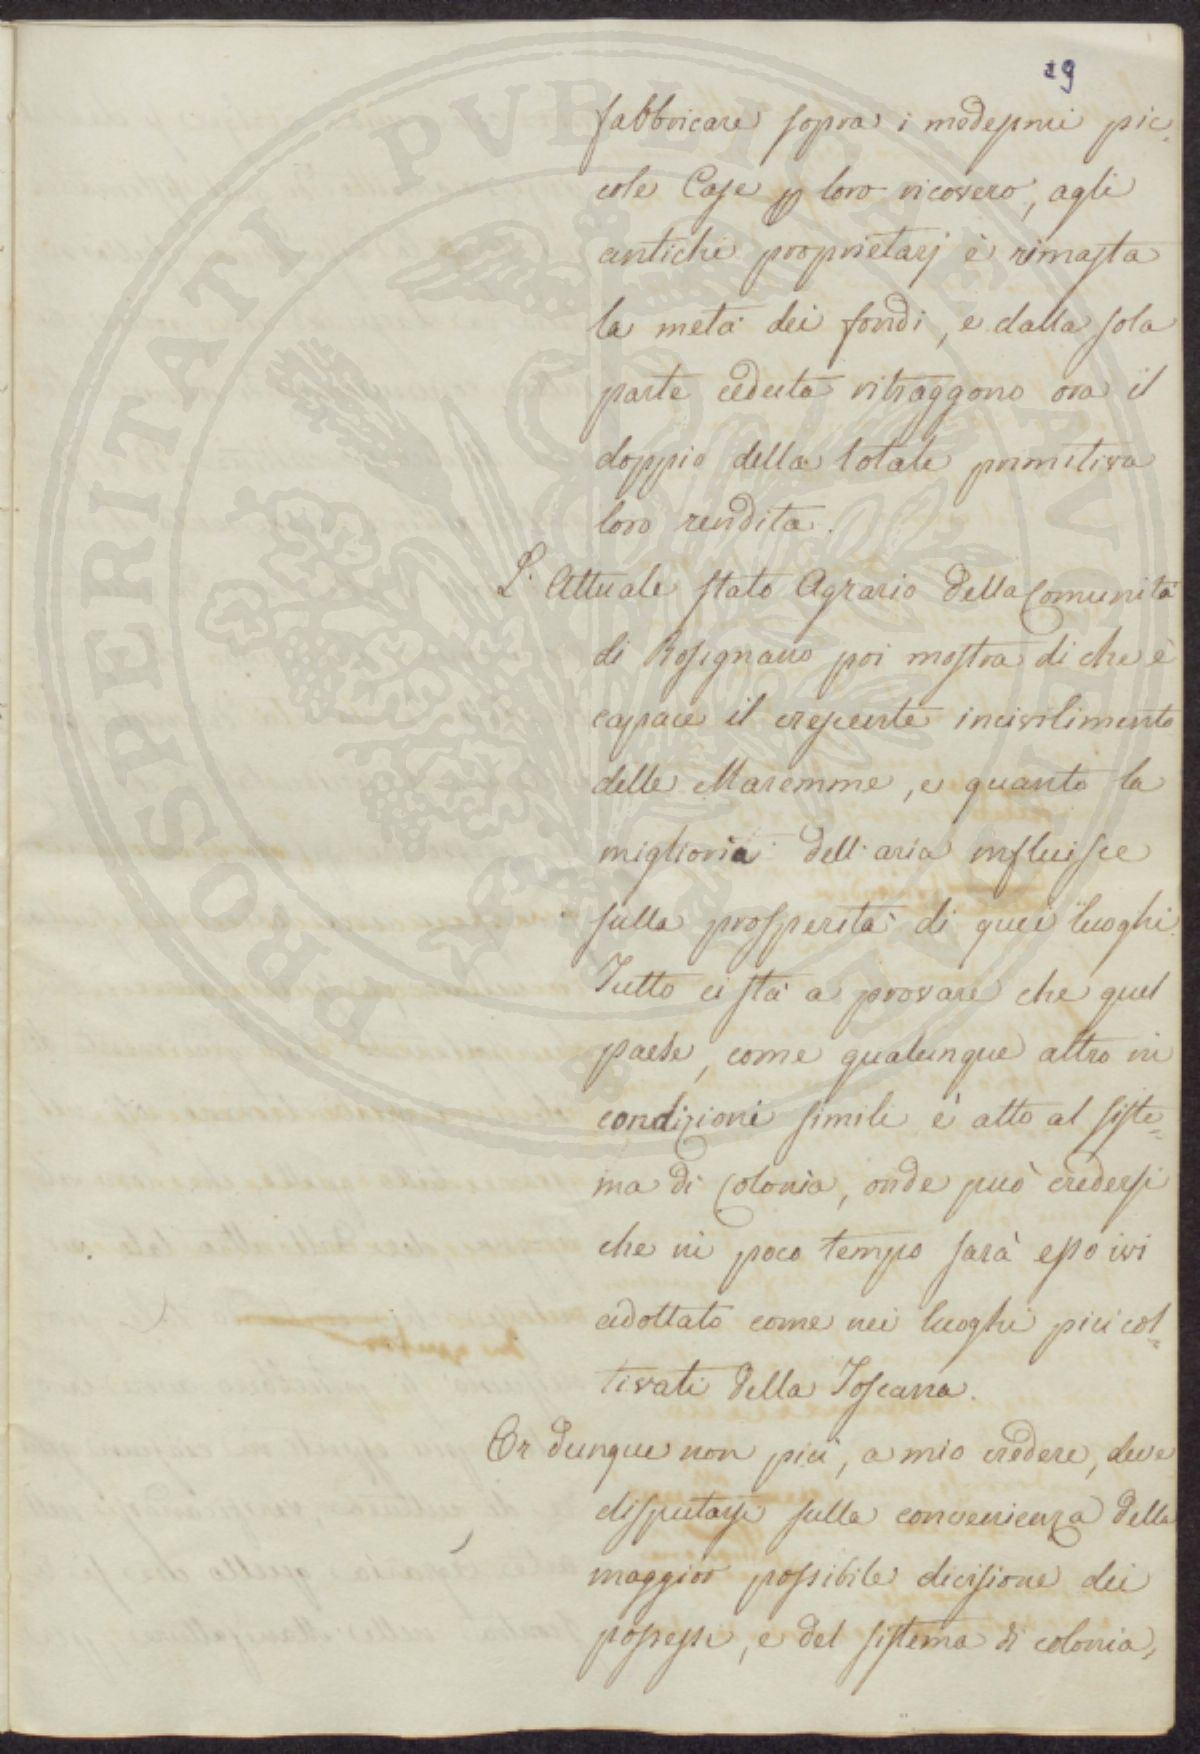 29
fabbricare sopra i medesimi pic-
cole Case p loro ricovero, agli
antichi proprietarj è rimasta
la metà dei fondi, e dalla sola
parte ceduta ritraggono ora il
doppio della totale primitiva
loro rendita.
L'Attuale stato Agrario della Comunità
di Rosignano poi mostra di che è
capace il crescente incivilimento
delle Maremme, e quanto la
miglioria dell'aria influisce
sulla prosperità di quei luoghi.
Tutto ci stà a provare che quel
paese, come qualunque altro in
condizioni simili è atto al siste=
ma di Colonia, onde può credersi
che in poco tempo sarà esso ivi
adottato come nei luoghi più col=
tivati della Toscana.
Or dunque non più, a mio credere, deve
disputarsi sulla convenienza della
maggior possibile divisione dei
possessi, e del sistema di colonia,
PROSPERITATI PVBLICAE AVGENDAE